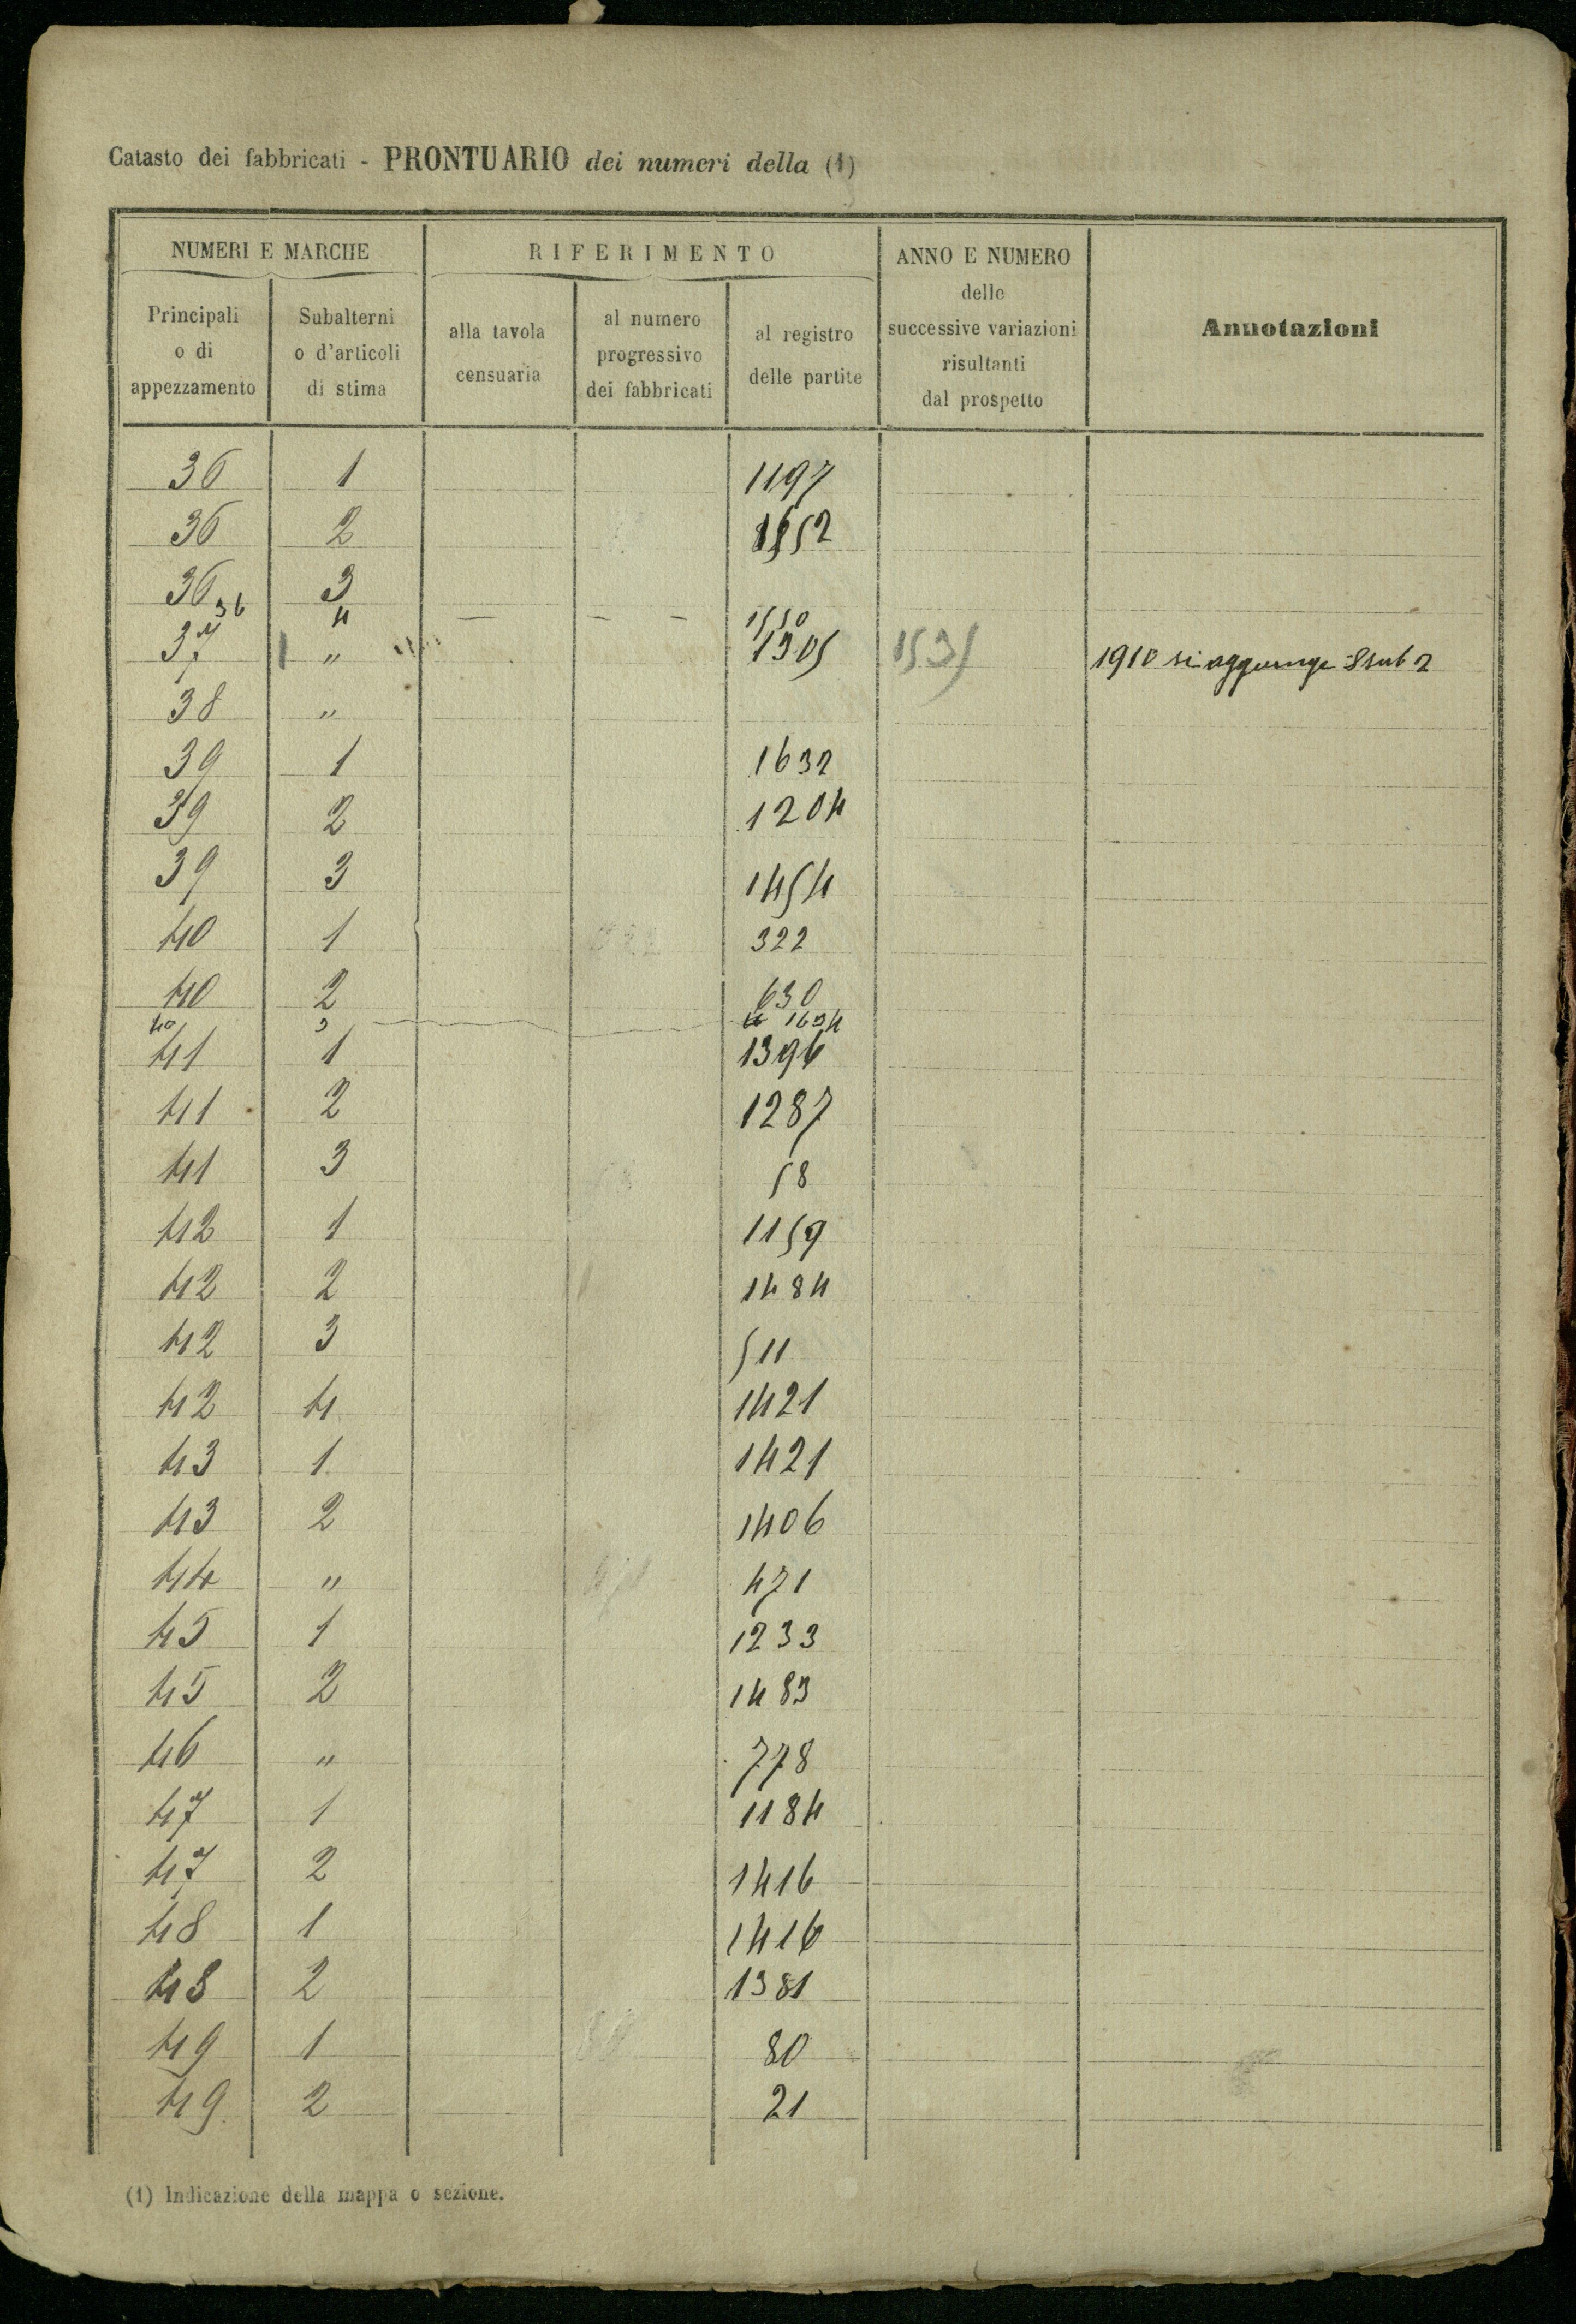 Catasto dei fabbricati - PRONTUARIO dei numeri della (1)
NUMERI E MARCHE
RIFERIMENTO
ANNO E NUMERO delle successive variazioni risultanti dal prospetto
Annotazioni
Principali o di appezzamento
Subalterni o d'articoli di stima
alla tavola censuaria
al numero progressivo dei fabbricati
al registro delle partite
36 1 1197
36 2 1652
36 3
36 4 — — — 1550
37 1 " 1305 1535 1910 si aggiunge 8 sub 2
38 "
39 1 1632
39 2 1204
39 3 1454
40 1 322
40 2 630
40 3 1634
41 1 1396
41 2 1287
41 3 58
42 1 1159
42 2 1484
42 3 511
42 4 1421
43 1 1421
43 2 1406
44 " 471
45 1 1233
45 2 1483
46 " 778
47 1 1184
47 2 1416
48 1 1416
48 2 1381
49 1 80
49 2 21
(1) Indicazione della mappa o sezione.